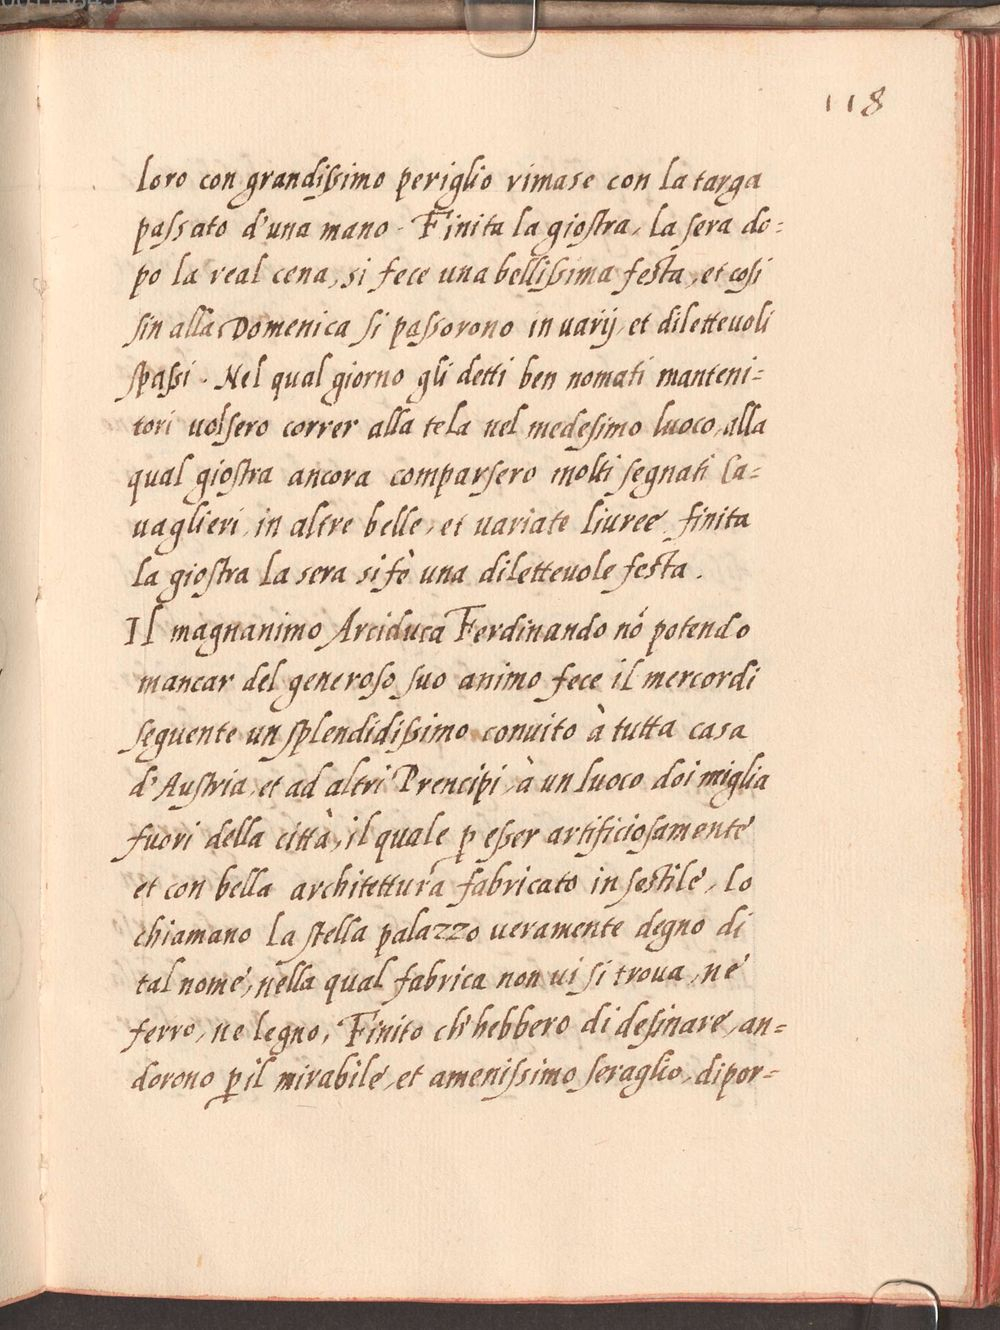 118
loro con grandissimo periglio rimase con la targa
passato d'una mano. Finita la giostra, la sera do=
po la real cena, si fece una bellissima festa, et cosi
sin alla Domenica si passorono in uarij, et diletteuoli
spassi. Nel qual giorno gli detti ben nomati manteni=
tori uolsero correr alla tela nel medesimo luoco, alla
qual giostra ancora comparsero molti segnati Ca=
uaglieri, in altre belle, et uariate liuree, finita
la giostra la sera si fè una diletteuole festa.
Il magnanimo Arciduca Ferdinando nõ potendo
mancar del generoso suo animo fece il mercordi
seguente un splendidissimo conuito à tutta casa
d'Austria, et ad altri Prencipi, à un luoco doi miglia
fuori della città, il quale ꝑ esser artificiosamente
et con bella architettura fabricato in sestile, lo
chiamano la stella palazzo ueramente degno di
tal nome, nella qual fabrica non ui si troua, ne
ferro, ne legno. Finito ch'hebbero di desinare, an=
dorono ꝑ il mirabile, et amenissimo seraglio, dipor=